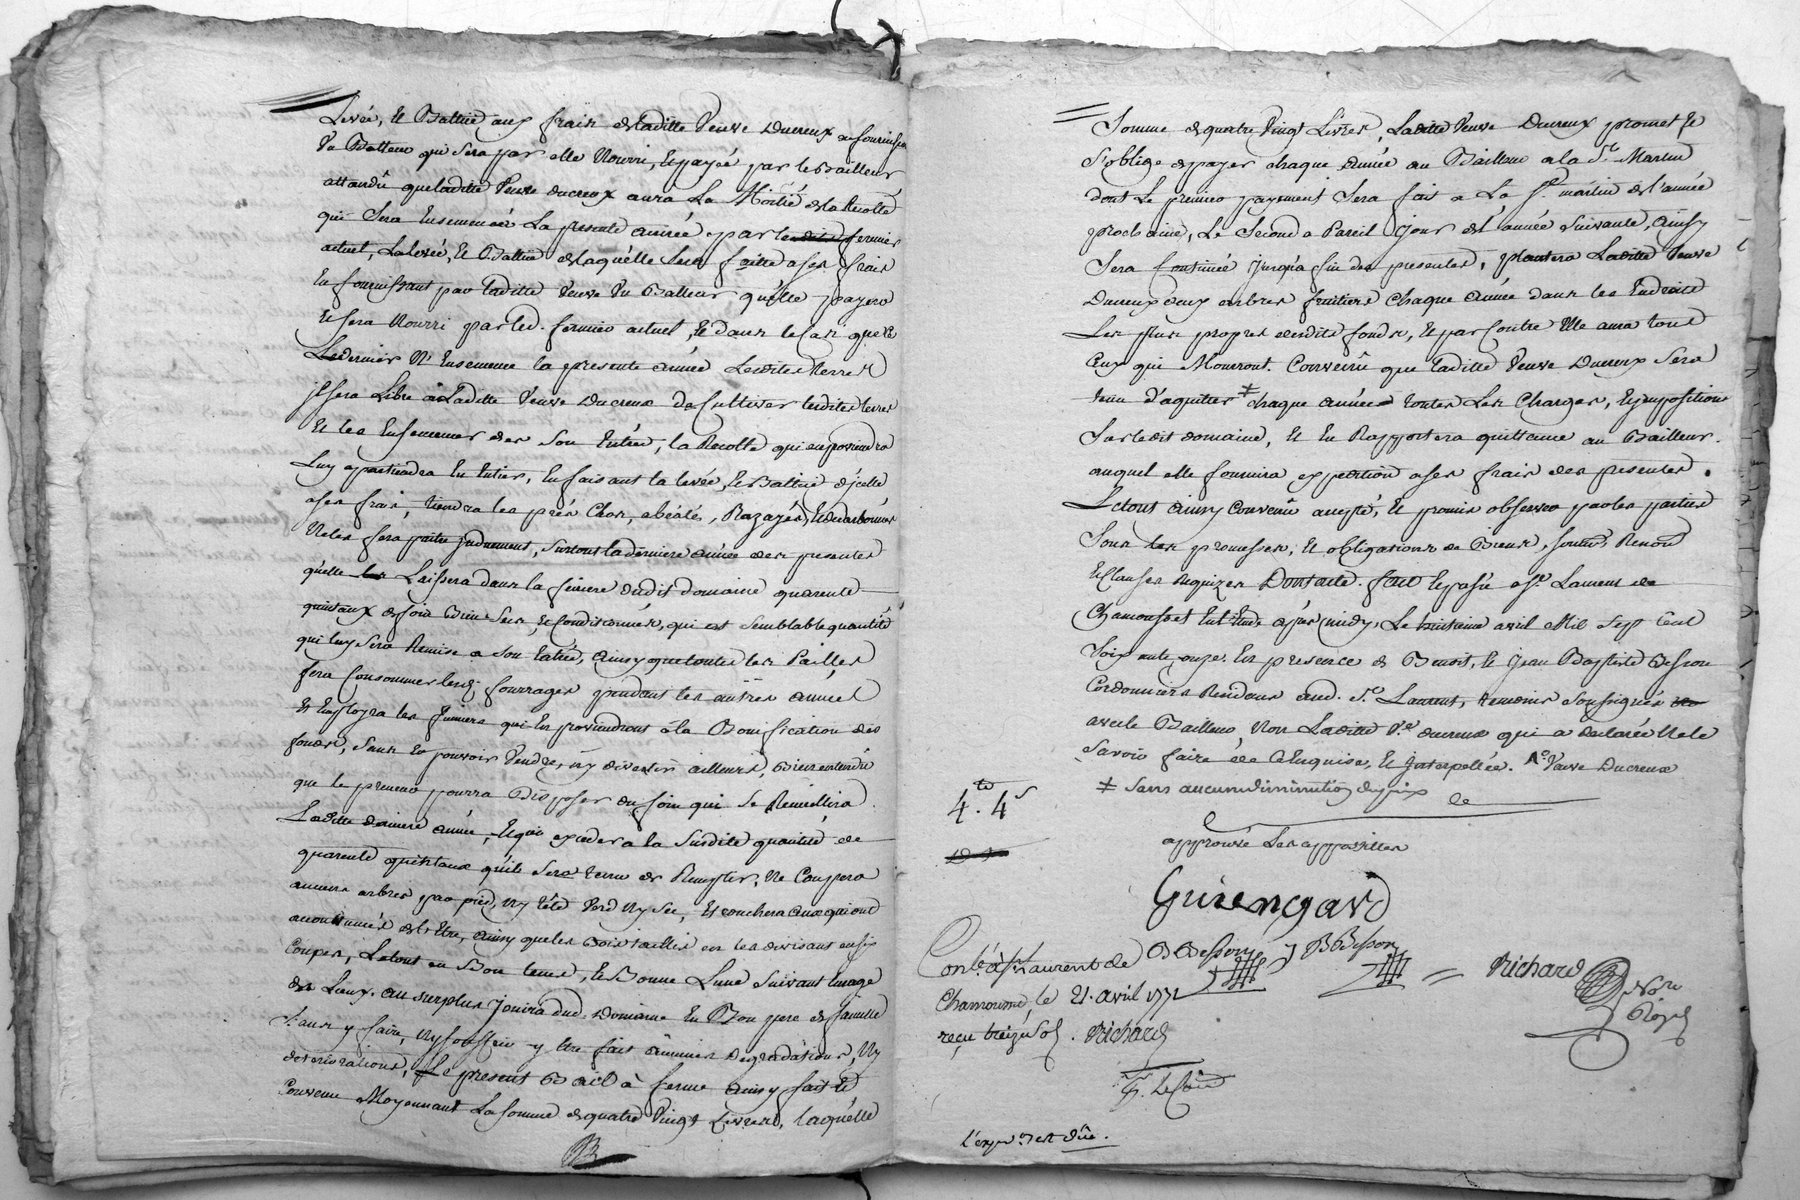 Levée, et Battue aux frais de laditte Veuve Ducreux en fournissant
Un Batteur qui sera par elle Nourri, et payée par le Bailleur
attandû que laditte Veuve ducreux aura La Moitié de la Recolte
qui Sera Ensemencé La presente année par le dit fermier
actuel, La levée, et Battue de laquelle sera faitte a ses frais
En fournissant par laditte Veuve Un Batteur qu'elle payera
Et sera Nourri par led. fermier actuel, Et dans le Cas que
Ledernier N'Ensemence la presente année Lesdites terres
il sera Libre à Laditte Veuve Ducreux de Cultiver lesdites terres
Et les Ensemencer des Son Entrée, la Recolte qui en proviendra
Luy apartiendra En Entier, En faisant la levée, et Battue d'icelle
a ses frais, tiendra les prés Clos,
Ne les fera paitre surtout la derniere année des presentes
qu'elle Laissera dans la feniere dudit domaine quarente
quintaux de foin Bien Secs, et Conditionnés, qui est semblable quantité
qui luy sera Remise a Son Entrée, ainsy que toutes les Pailles
fera Consommer lesd. fourrages pendant les autres années
Et Employra les fumiers qui En proviendront à la Bonification des
fonds, Sans En pouvoir Vendre, ny divertir ailleurs, Bien entendû
que le preneur pourra Disposer du foin qui Se Reccuillira
Laditte derniere année, Et qui excedera la Susdite quantité de
quarente quintaux qu'elle Sera tenue de Ne Coupera
aucuns arbres par pied, ny tété Verd Ny Sec, Et ceux qui ont
accoutumés de l'Etre, ainsy que les Bois taillis en les divisant en six
Coupes, Le tout en Bon tems, et Bonne Lune Suivant l'usage
des Lieux. au surplus Jouira dud. Domaine En Bon pere de famille
Sans y faire, Ny souffrir y Etre fait aucunes Degradations, Ny
deteriorations, Le present Bail à ferme ainsy fait Et
Convenu Moyennant La somme de quatre Vingt Livres, laquelle
Somme de quatre Vingt Livres, Laditte Veuve Ducreux promet Et
S'oblige de payer chaque année au Bailleur a la St. Martin
dont Le premier payement Sera fait a La St. martin de l'année
prochaine, Le Second a Pareil Jour de l'année Suivante, Ainsy
Sera Continué Jusqu'a fin des presentes, plantera Laditte Veuve
Ducreux deux arbres fruitiers chaque Année dans les Endroits
Les plus propres desdits fonds, et par Contre Elle aura tous
Ceux qui Mouront. Convenû que laditte Veuve Ducreux Sera
tenue d'aquitter ≠ chaque année toutes Les Charges, Et impositions
Sur ledit domaine, Et En Rapportera quittance au Bailleur.
auquel elle fournira expedition a ses frais des presentes.
Le tout ainsy Convenû accepté, Et promis observer par les parties
Sous les promesses, Et obligations de Biens, Renon
Et Clauses Requizes Dont acte. fait Et passé a St. Laurent de
Chamousset Etude aprés midy, Le huitieme avril Mil Sept Cent
Soixante onze. En presence de Benoit, Et Jean Baptiste Besson
Cordonniers Residans aud. St. Laurent, temoins Soussignés
avec le Bailleur, Non Laditte Ve. ducreux qui a declarée Ne le
Savoir faire de Ce Enquise, Et Interpellée. Veuve Ducreux
≠ Sans aucune diminution du prix de
4tt. 4s
approuvé Les appostilles
Guiengard
B Besson J B Besson
Richard
Nore
Royal
Conlé. à St Laurent de
Chamousset, le 21. avril 1771
reçu treize sol. Richard
l'expon. est dûe.